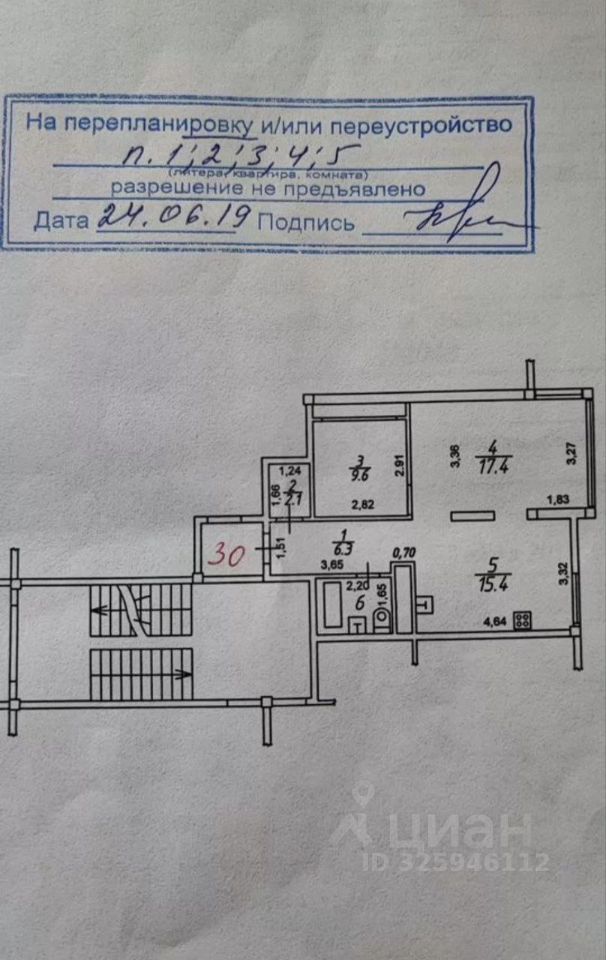 На перепланировку и/или переустройство
п. 1; 2; 3; 4; 5
(литера, квартира, комната)
разрешение не предъявлено
Дата 24.06.19 Подпись
1,24
2
2.1
1,66
3
9.6
2,91
2,82
3,36
4
17.4
3,27
1,83
30
1,51
1
6.3
3,65
0,70
5
15.4
3,32
2,20
6
1,65
4,64
циан
ID 325946112